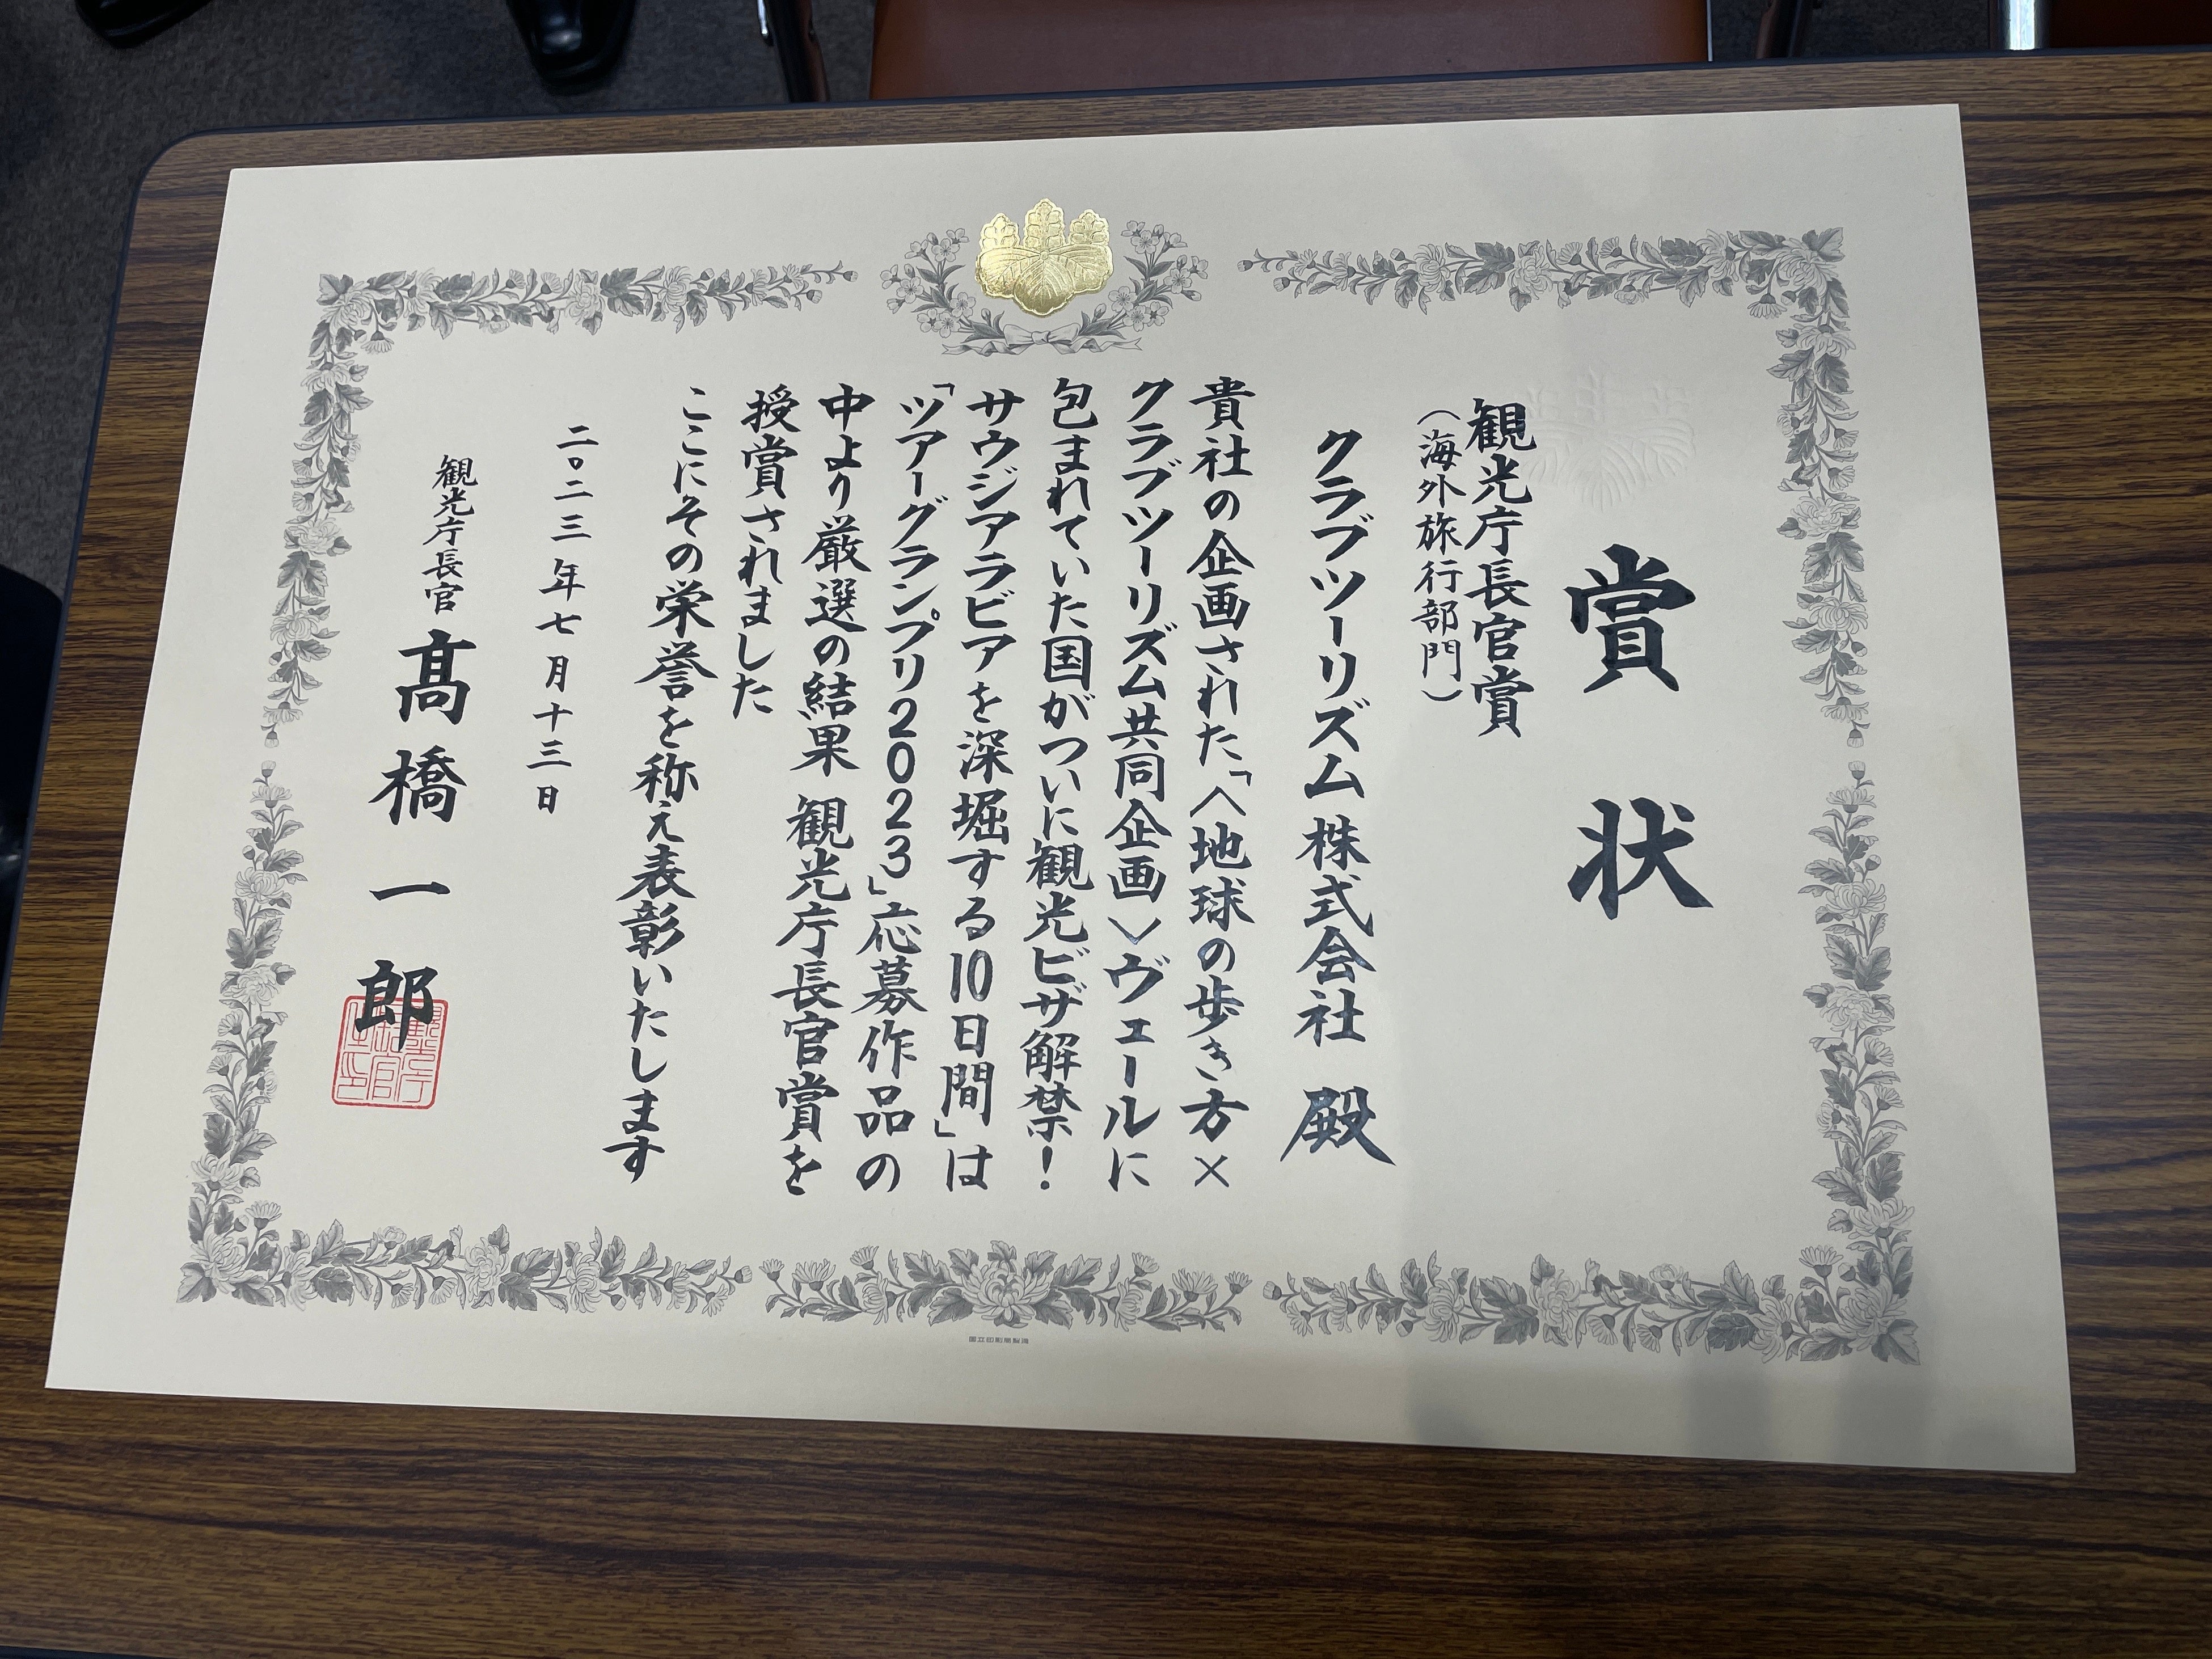 賞状
観光庁長官賞
（海外旅行部門）
クラブツーリズム株式会社 殿
貴社の企画された「＜地球の歩き方×
クラブツーリズム共同企画＞ヴェールに
包まれていた国がついに観光ビザ解禁！
サウジアラビアを深堀する10日間」は
「ツアーグランプリ2023」応募作品の
中より厳選の結果 観光庁長官賞を
授賞されました
ここにその栄誉を称え表彰いたします
二〇二三年七月十三日
観光庁長官 髙橋一郎
国立印刷局製造